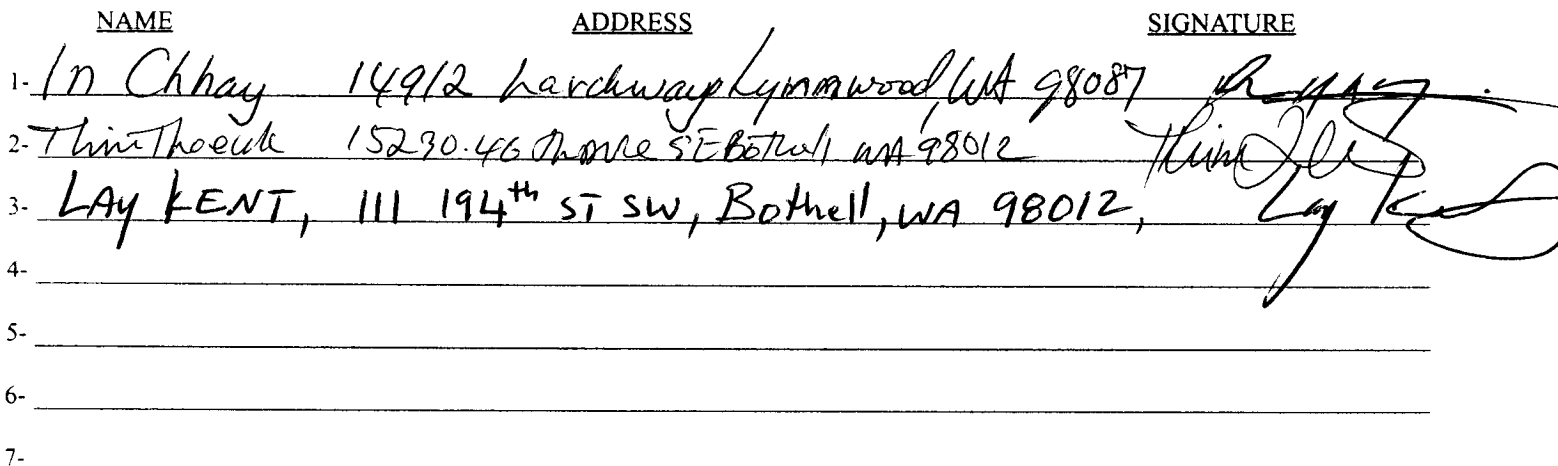 NAME ADDRESS SIGNATURE
1- In Chhay 14912 Larchway Lynnwood, WA 98087
2- Thim Thoeuk 15230. 46 th Ave SE Bothell WA 98012 Thim
3- LAy KENT, 111 194th ST SW, Bothell, WA 98012, Lay Kent
4-
5-
6-
7-